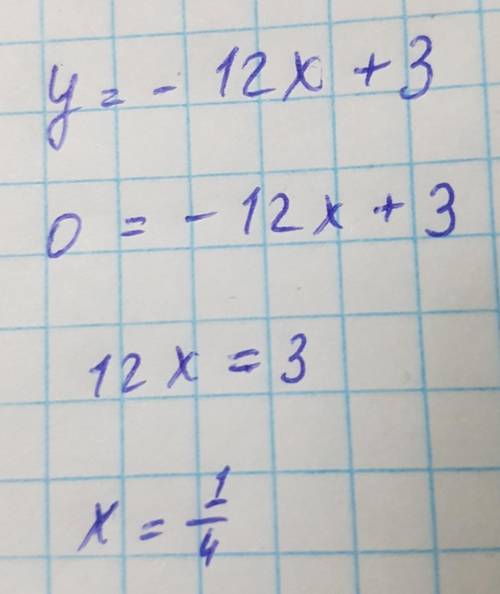 y = - 12x + 3
0 = - 12x + 3
12x = 3
x = 1/4